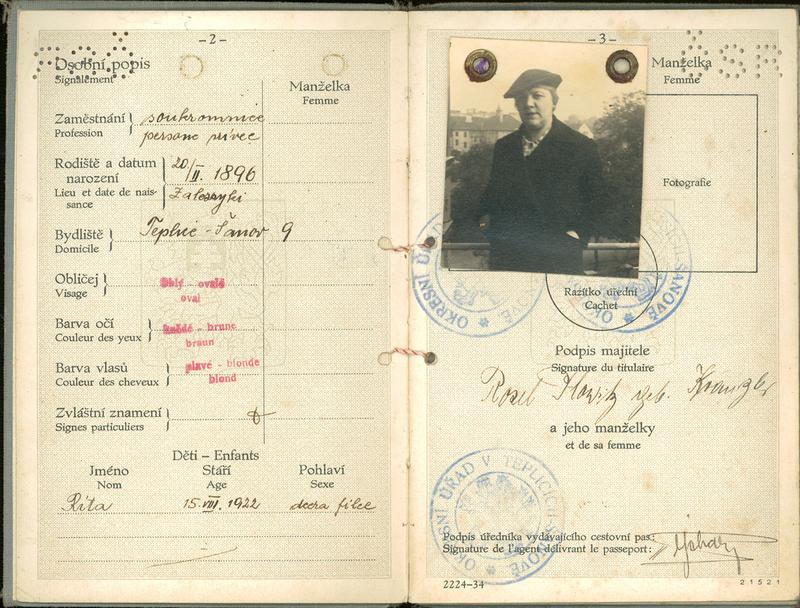 -2-
Osobní popis
Signalement
Manželka
Femme
Zaměstnání
Profession
soukromnice
persone privée
Rodiště a datum
narození
Lieu et date de nais-
sance
20/II. 1896
Zaleszyki
Bydliště
Domicile
Teplic-Šanov 9
Obličej
Visage
oval
Barva očí
Couleur des yeux
- brune
braun
Barva vlasů
Couleur des cheveux
plavé - blonde
blond
Zvláštní znamení
Signes particuliers
Děti - Enfants
Jméno
Nom
Stáří
Age
Pohlaví
Sexe
Rita
15. VIII. 1922
dcera filee
-3-
ČSR
Manželka
Femme
Fotografie
OKRESNÍ ÚŘAD V TEPLICÍCH ŠANOVĚ
Razítko úřední
Cachet
Podpis majitele
Signature du titulaire
geb.
a jeho manželky
et de sa femme
OKRESNÍ ÚŘAD V TEPLICÍCH ŠANOVĚ
Podpis úředníka vydávajícího cestovní pas:
Signature de l'agent délivrant le passeport:
2224-34
21521